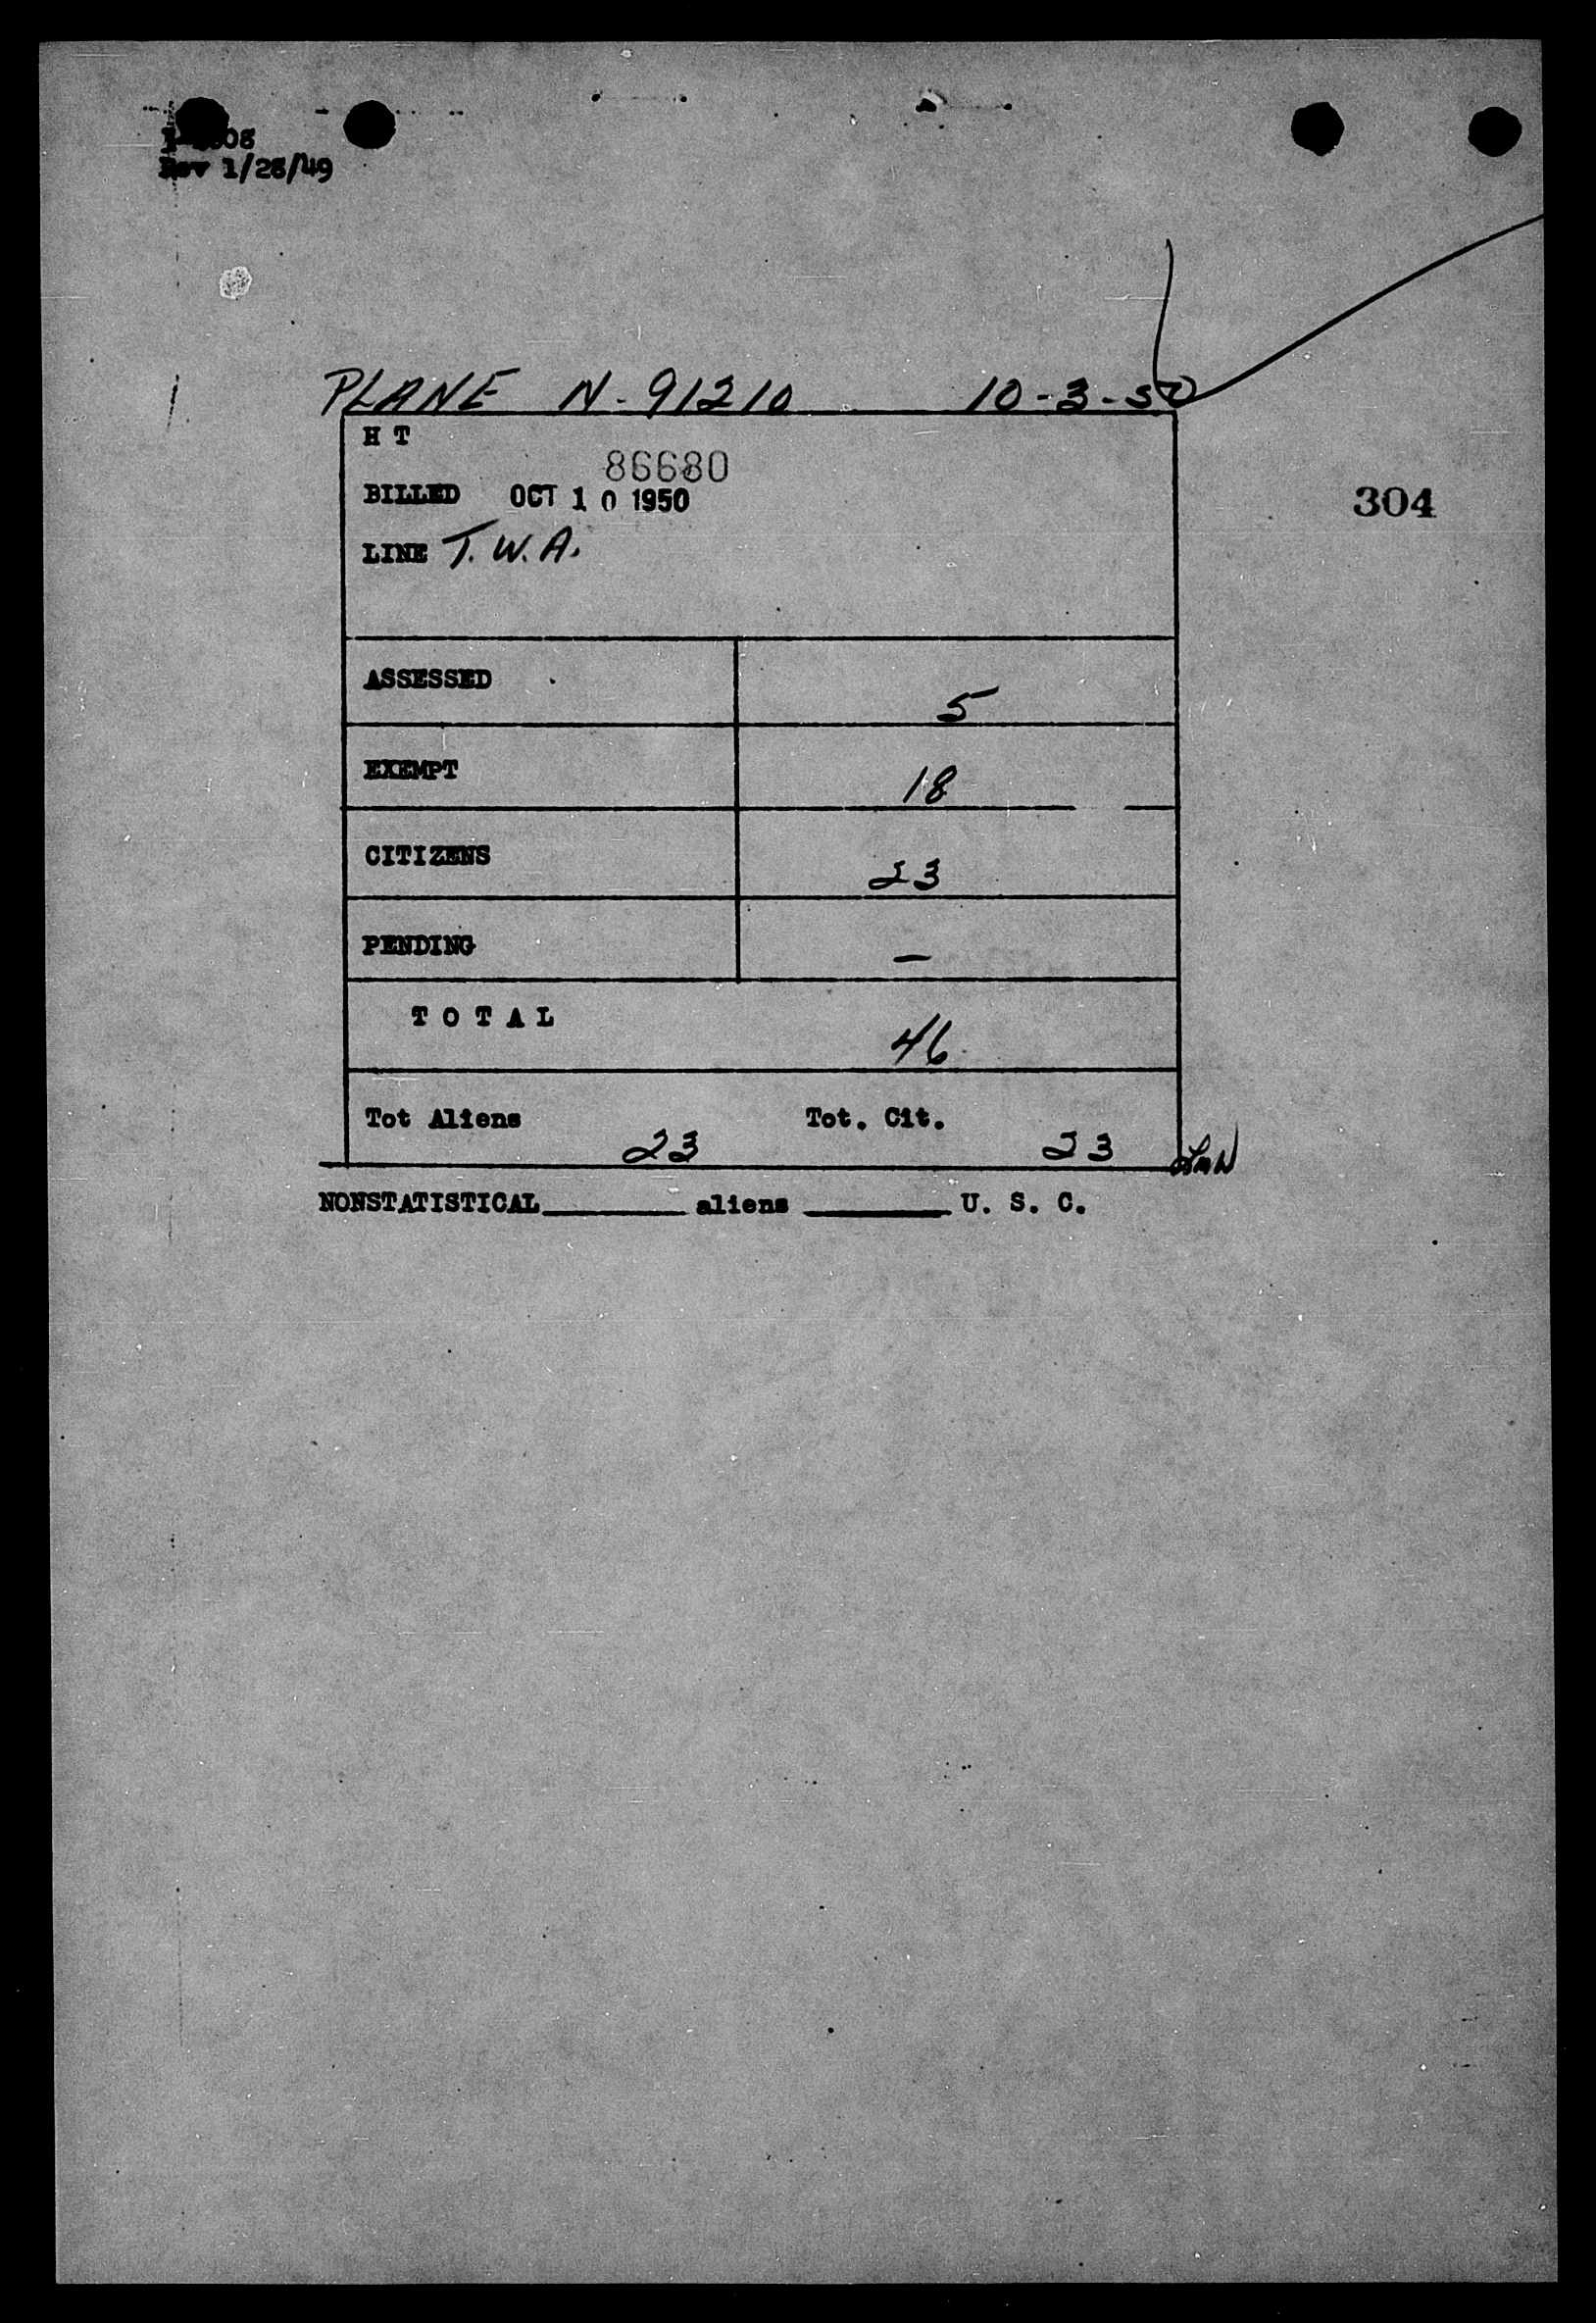 Rev 1/28/49
PLANE N-91210 10-3-50
H T
86680
BILLED OCT 10 1950
304
LINE T.W.A.
ASSESSED 5
EXEMPT 18
CITIZENS 23
PENDING —
TOTAL 46
Tot Aliens 23 Tot. Cit. 23
NONSTATISTICAL________ aliens ________ U. S. C.